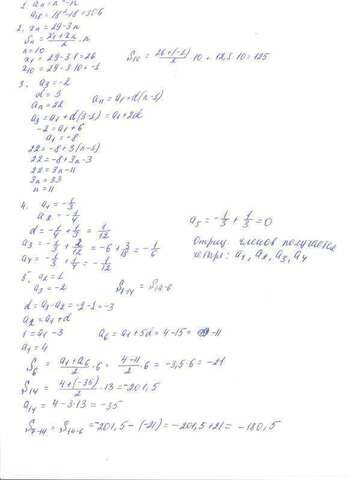 1. aₙ = n² - n
a₁₉ = 18² - 18 = 306
2. xₙ = 29 - 3n
Sₙ = (x₁ + xₙ)/2 · n
n = 10
x₁ = 29 - 3·1 = 26
x₁₀ = 29 - 3·10 = -1
S₁₀ = (26 + (-1))/2 · 10 = 12,5 · 10 = 125
3. a₃ = -2
d = 3
aₙ = 22
aₙ = a₁ + d(n-1)
a₃ = a₁ + d(3-1) = a₁ + 2d
-2 = a₁ + 6
a₁ = -8
22 = -8 + 3(n-1)
22 = -8 + 3n - 3
22 = 3n - 11
3n = 33
n = 11
4. a₁ = -1/3
a₂ = -1/4
d = -1/4 + 1/3 = 1/12
a₃ = -1/3 + 2/12 = -6 + 3/18 = -1/6
a₄ = -1/3 + 1/4 = -1/12
a₅ = -1/3 + 1/3 = 0
Отриц. членов получается
четыре: a₁, a₂, a₃, a₄
5. a₂ = 1
a₃ = -2
S₇₋₁₄ = S₁₄₋₆
d = a₃ - a₂ = -2 - 1 = -3
a₂ = a₁ + d
1 = a₁ - 3
a₁ = 4
a₆ = a₁ + 5d = 4 - 15 = -11
S₆ = (a₁ + a₆)/2 · 6 = (4 - 11)/2 · 6 = -3,5 · 6 = -21
S₁₄ = (4 + (-35))/2 · 13 = -201,5
a₁₄ = 4 - 3·13 = -35
S₇₋₁₄ = S₁₄₋₆ = -201,5 - (-21) = -201,5 + 21 = -180,5